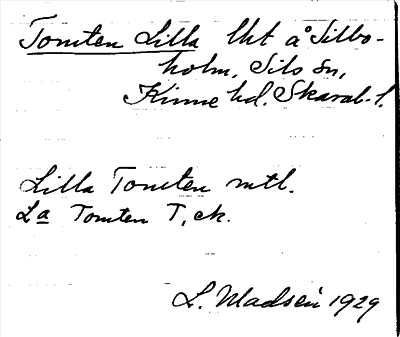 Tomten Lilla lht å Silbo-
holm, Sils sn,
Kinne hd. Skarab. l.
Lilla Tomten mtl.
La Tomten T, ek.
L. Madsén 1929